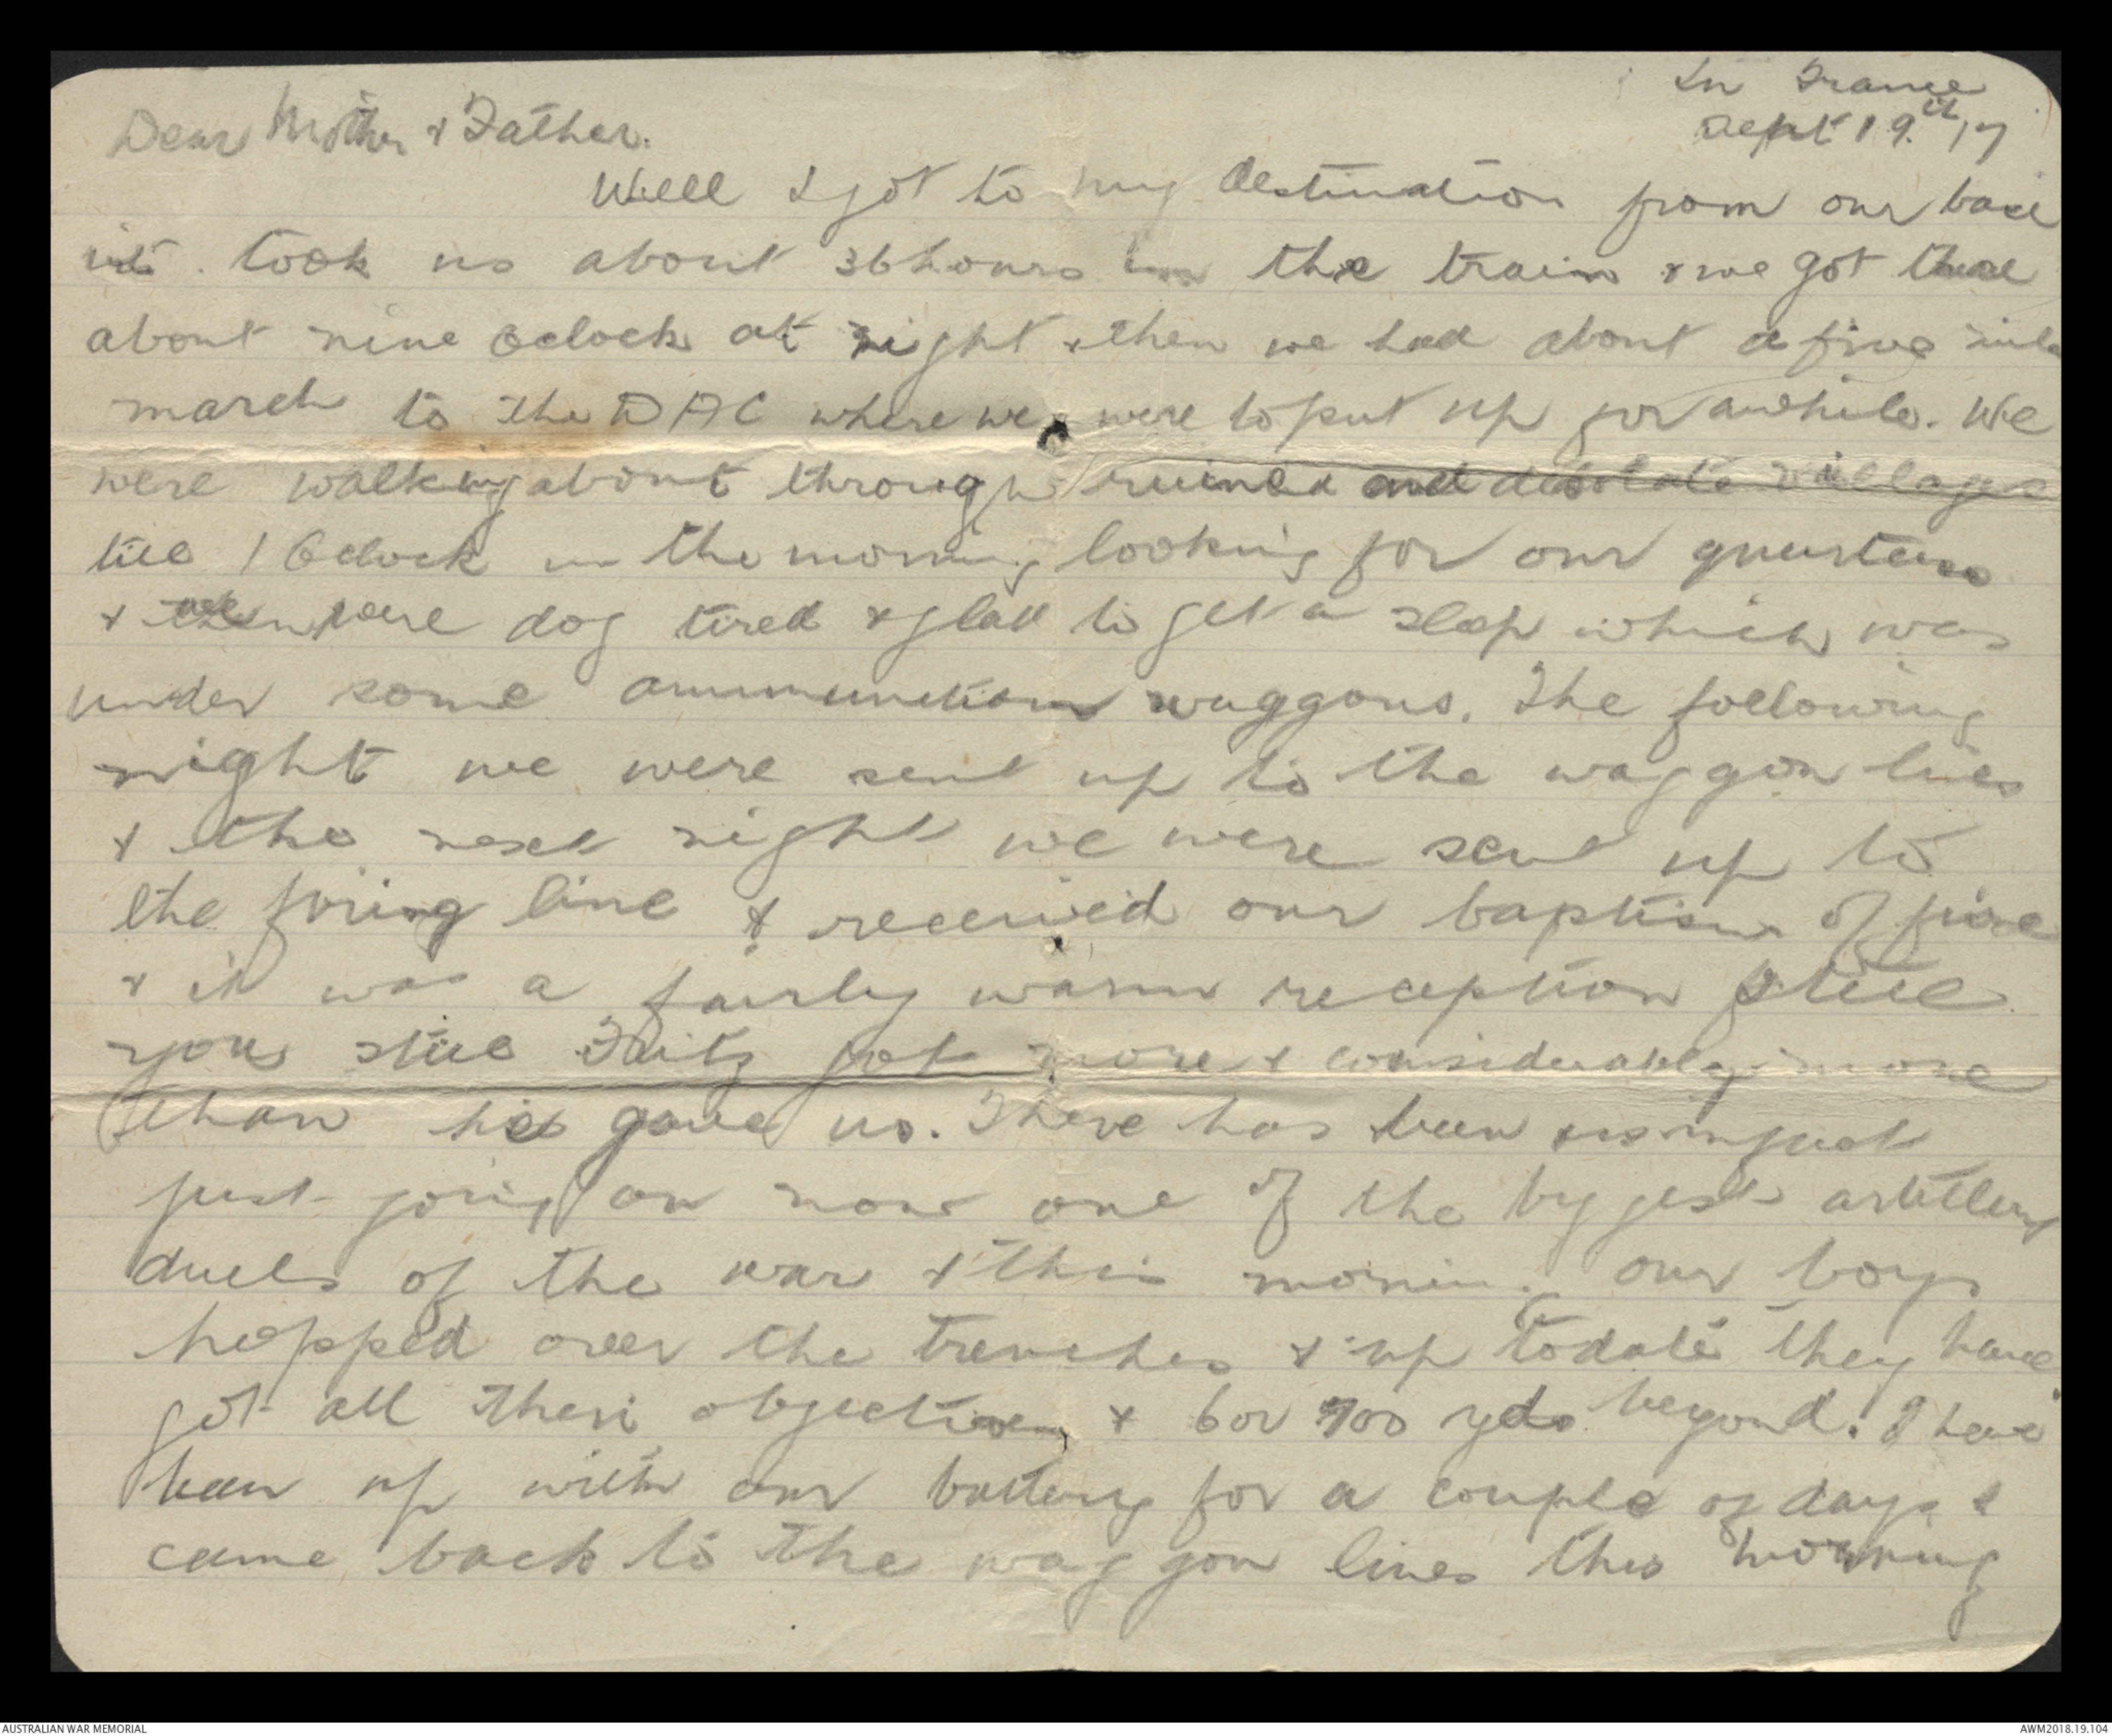 In France
Sept 19th 17
Dear Mother & Father.
Well I got to my destination from our base
it took us about 36 hours in the train & we got there
about nine Oclock at night & then we had about a five mile
march to the DAC where we were to put up for awhile. We
were walking about through ruined and desolate villages
till 1 Oclock in the morning looking for our quarters
& were dog tired & glad to get a sleep which was
under some ammunition waggons. The following
night we were sent up to the waggon lines
& the next night we were sent up to
the firing line & received our baptism of fire
& it was a fairly warm reception
you still Fritz got more & considerably more
than he gave us. There has been
just going on now one of the biggest artillery
duels of the war & this morning our boys
hopped over the trenches & up todate they have
got all their objectives & 6 or 700 yds beyond. I have
been up with our battery for a couple of days &
came back to the waggon lines this morning
AUSTRALIAN WAR MEMORIAL
AWM2018.19.104